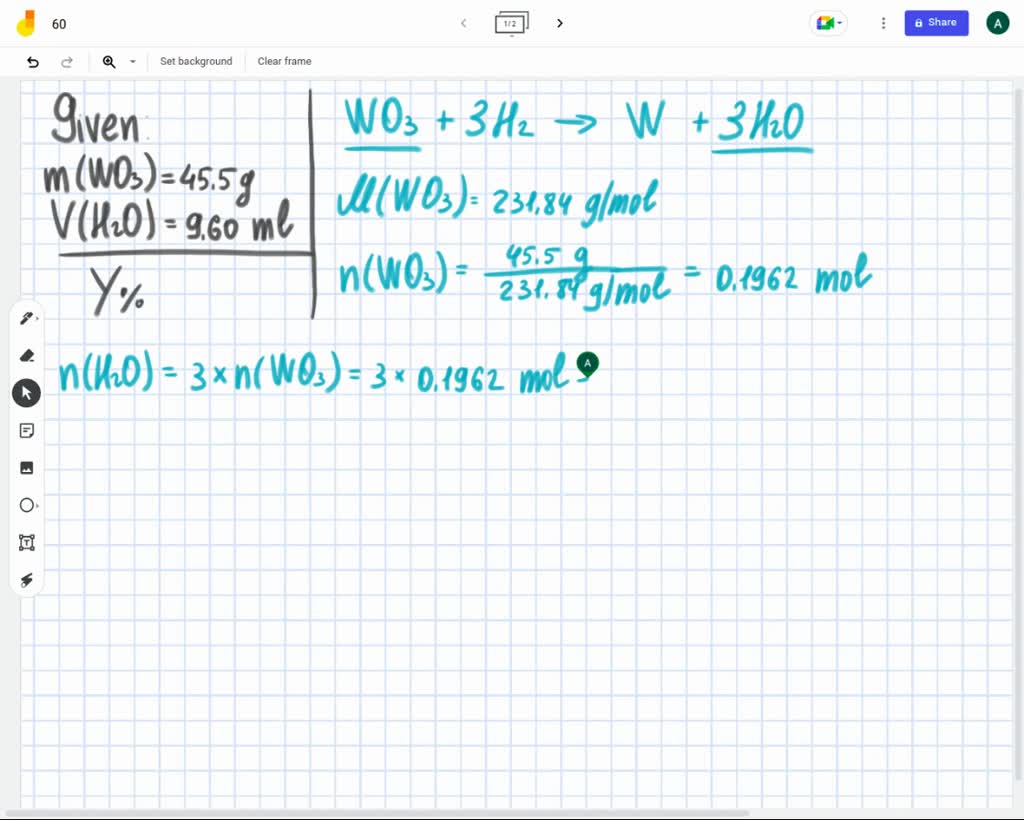 60
1/2
Share
A
Set background
Clear frame
Given:
m(WO₃)=45.5g
V(H₂O)=9.60 ml
Y%
WO₃ + 3H₂ → W + 3H₂O
M(WO₃)= 231.84 g/mol
n(WO₃)= 45.5 g / 231.84 g/mol = 0.1962 mol
n(H₂O)= 3×n(WO₃)= 3×0.1962 mol =
A